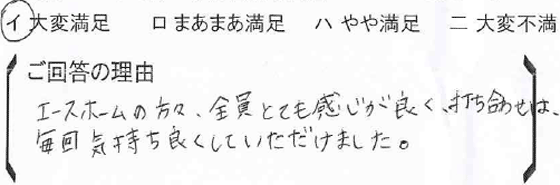 イ 大変満足 ロ まあまあ満足 ハ やや満足 ニ 大変不満
ご回答の理由
エースホームの方々、全員とても感じが良く、打ち合わせは、
毎回気持ち良くしていただけました。